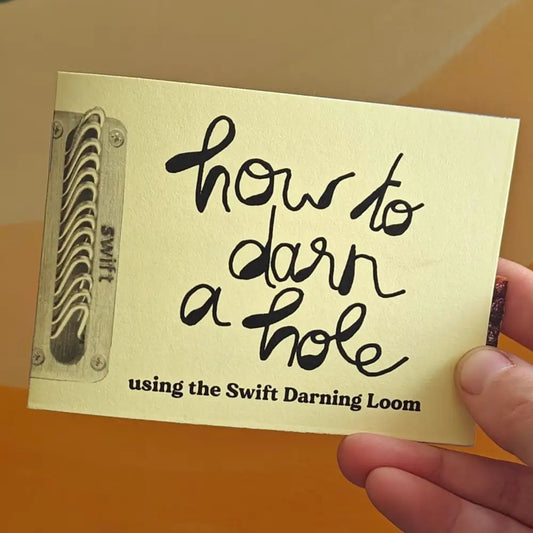 how to
darn
a hole
using the Swift Darning Loom
swift